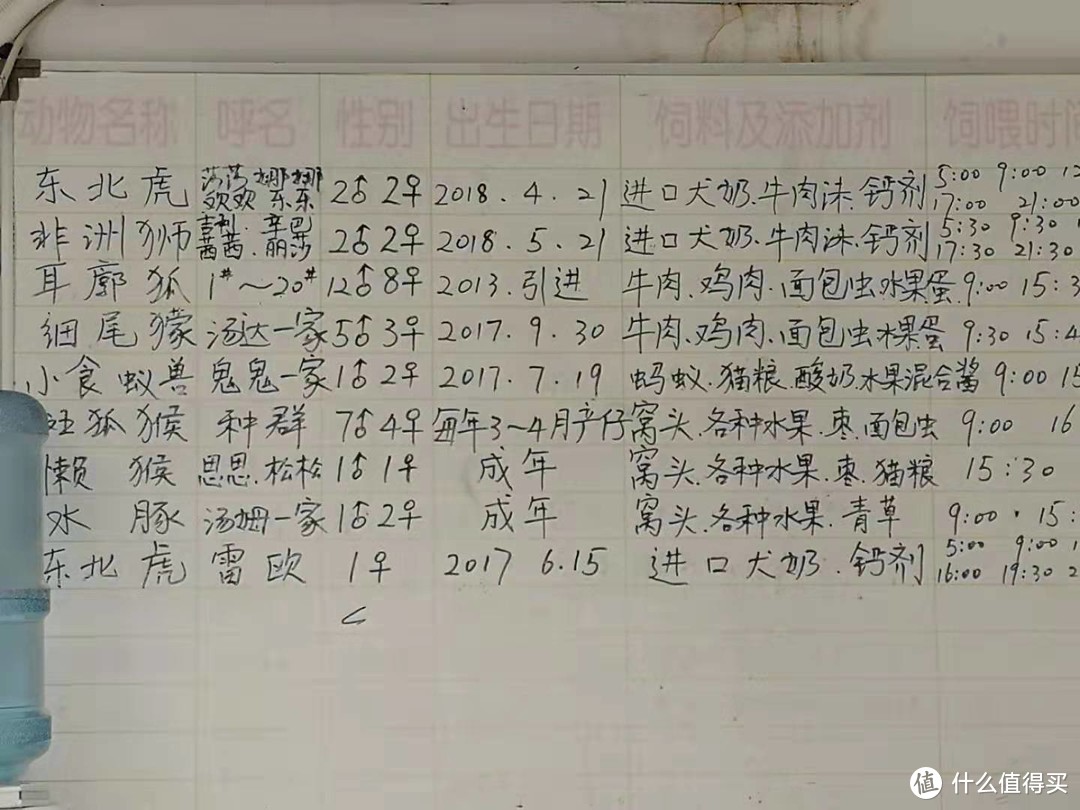 动物名称 呼名 性别 出生日期 饲料及添加剂 饲喂时间
东北虎 莎莎 娜娜 欢欢 乐乐 2♂2♀ 2018.4.21 进口犬奶.牛肉沫.钙剂 5:00 9:00 17:00 21:00
非洲狮 吉利.辛巴 茜茜.丽莎 2♂2♀ 2018.5.21 进口犬奶.牛肉沫.钙剂 5:30 9:30 17:30 21:30
耳廓狐 1#~20# 12♂8♀ 2013.引进 牛肉.鸡肉.面包虫水果蛋 9:00 15:3
细尾獴 汤达一家 5♂3♀ 2017.9.30 牛肉.鸡肉.面包虫水果蛋 9:30 15:4
小食蚁兽 鬼鬼一家 1♂2♀ 2017.7.19 蚂蚁.猫粮.酸奶.水果混合酱 9:00 15
狐猴 种群 7♂4♀ 每年3~4月产仔 窝头.各种水果.枣.面包虫 9:00 16
懒猴 思思.松松 1♂1♀ 成年 窝头.各种水果.枣.猫粮 15:30
水豚 汤姆一家 1♂2♀ 成年 窝头.各种水果.青草 9:00 · 15:
东北虎 雷欧 1♀ 2017 6.15 进口犬奶.钙剂 5:00 9:00 16:00 19:30 2
值 什么值得买